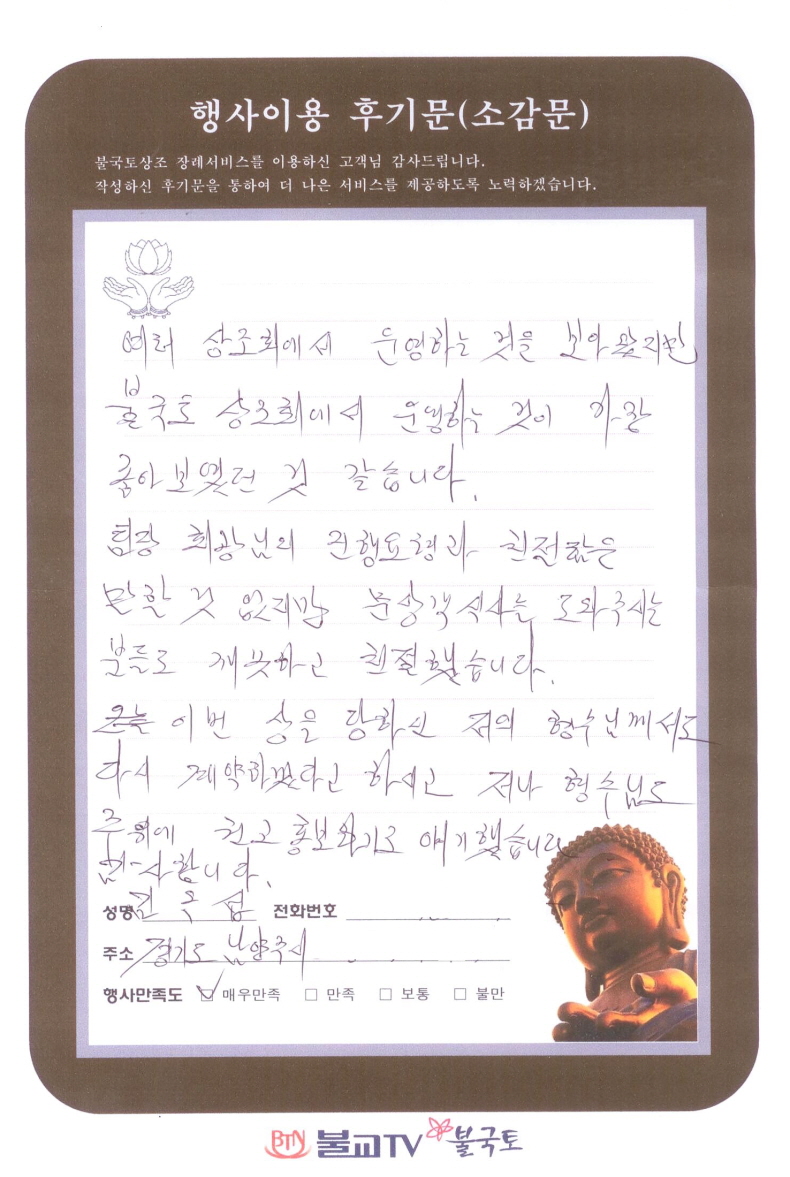 행사이용 후기문(소감문)
불국토상조 장례서비스를 이용하신 고객님 감사드립니다.
작성하신 후기문을 통하여 더 나은 서비스를 제공하도록 노력하겠습니다.
여러 상조회에서 운영하는 것을 보아 왔지만
불국토 상조회에서 운영하는 것이 가장
좋아보였던 것 같습니다.
팀장 회광님의 진행요령과 친절함은
말할 것 없지만 문상객 식사를 도와주시는
분들도 깨끗하고 친절했습니다.
이번 상을 당하신 저의 형수님께서도
다시 계약하겠다고 하시고 저나 형수님도
주위에 권고 홍보하기로 얘기했습니다
감사합니다.
성명 김옥섭 전화번호
주소 경기도 남양주시
행사만족도 ☑ 매우만족 □ 만족 □ 보통 □ 불만
BTN 불교TV 불국토